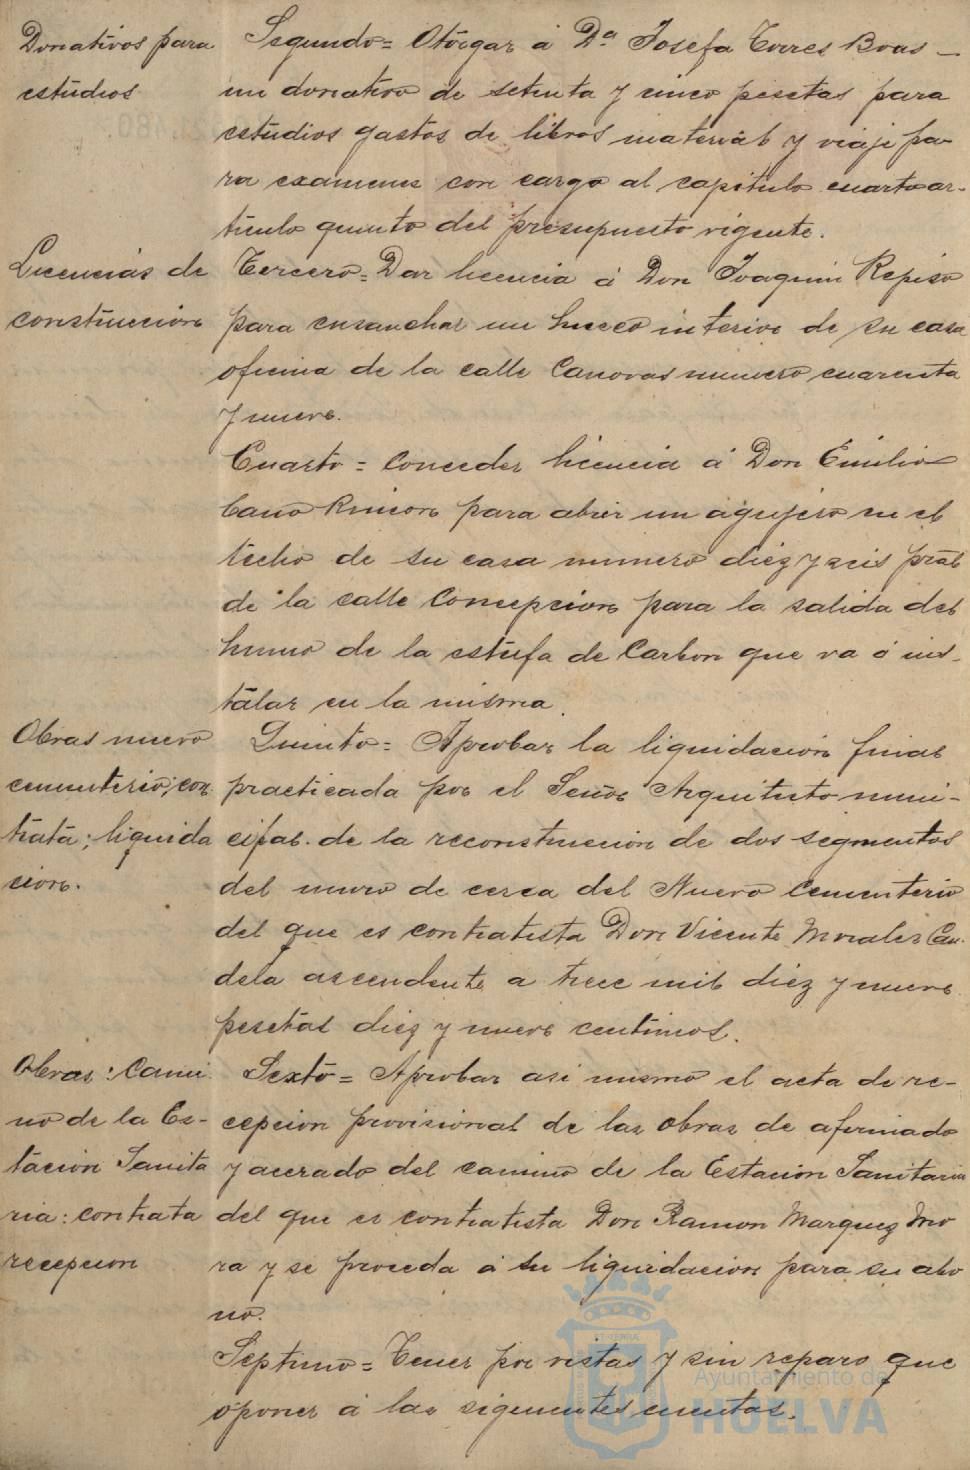 Donativos para
estudios
Segundo= Otorgar á Dª Josefa Torres Boas
un donativo de setenta y cinco pesetas para
estudios gastos de libros material y viaje pa-
ra examenes con cargo al capitulo cuarto ar-
ticulo quinto del presupuesto vigente.
Licencias de
construccion
Tercero= Dar licencia á Don Joaquin Repiso
para ensanchar un hueco interior de su casa
oficina de la calle Canovas numero cuarenta
y nueve.
Cuarto= Conceder licencia á Don Emilio
Cano Rincon para abrir un agujero en el
techo de su casa numero diez y seis pral
de la calle Concepcion para la salida del
humo de la estufa de Carbon que va á ins-
talar en la misma.
Obras nuevo
cementerio; con
trata; liquida
cion.
Quinto= Aprobar la liquidacion final
practicada por el Señor Arquitecto muni-
cipal de la reconstruccion de dos segmentos
del muro de cerca del Nuevo Cementerio
del que es contratista Don Vicente Morales Can-
dela ascendente a trece mil diez y nueve
pesetas diez y nueve centimos.
Obras: Cami
no de la Es-
tacion Sanita
ria: contrata
recepcion
Sexto= Aprobar asi mismo el acta de re-
cepcion provisional de las obras de afirmado
y acerado del camino de la Estacion Sanitaria
del que es contratista Don Ramon Marquez Mo
ra y se proceda á su liquidacion para su abo
no.
Septimo= Tener por vistas y sin reparo que
oponer á las siguientes cuentas.
Ayuntamiento de
HUELVA